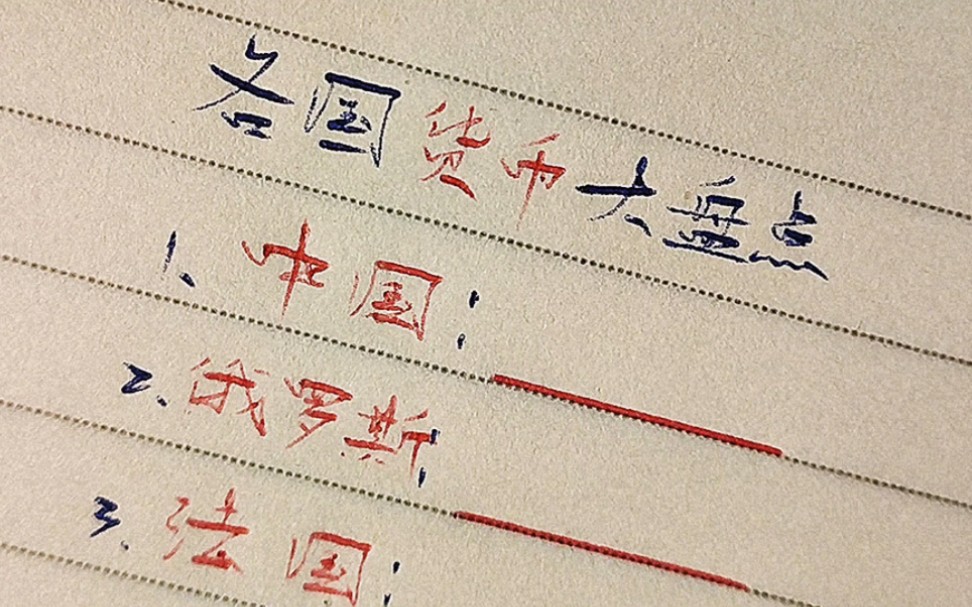 各国货币大盘点
1、中国：
2.俄罗斯：
3.法国：